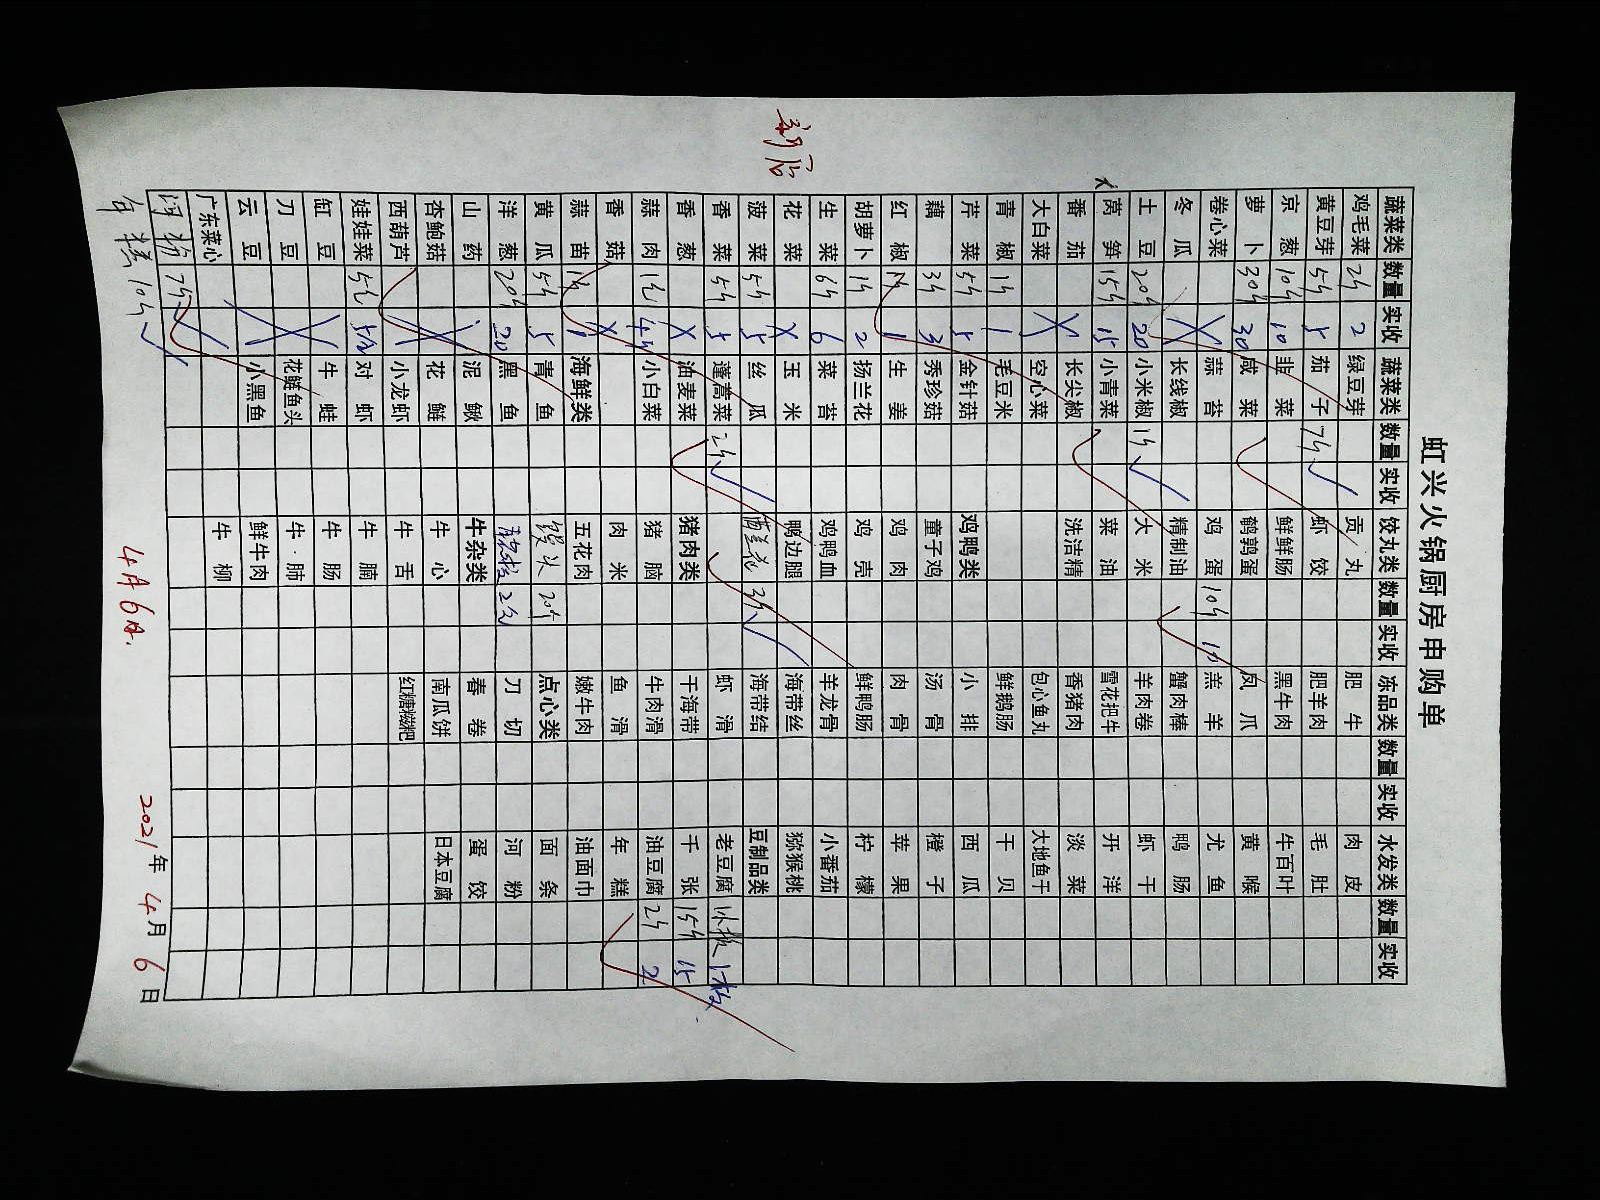 虹兴火锅厨房申购单
新店
蔬菜类 数量 实收 蔬菜类 数量 实收 饺丸类 数量 实收 冻品类 数量 实收 水发类 数量 实收
鸡毛菜 2斤 2 绿豆芽 贡丸 肥牛 肉皮
黄豆芽 5斤 5 茄子 7斤 虾饺 肥羊肉 毛肚
京葱 10斤 10 韭菜 鲜鲜肠 黑牛肉 牛百叶
萝卜 30斤 30 咸菜 鹌鹑蛋 凤爪 黄喉
卷心菜 蒜苔 鸡蛋 10斤 10 羔羊 尤鱼
冬瓜 长线椒 精制油 蟹肉棒 鸭肠
土豆 20斤 20 小米椒 1斤 大米 羊肉卷 虾干
莴笋 15斤 15 小青菜 菜油 雪花把牛 开洋
番茄 长尖椒 洗洁精 香猪肉 淡菜
大白菜 空心菜 包心鱼丸 大地鱼干
青椒 1斤 1 毛豆米 鲜鹅肠 干贝
芹菜 5斤 5 金针菇 鸡鸭类 小排 西瓜
藕 3斤 3 秀珍菇 童子鸡 汤骨 橙子
红椒 1斤 1 生姜 鸡肉 肉骨 苹果
胡萝卜 1斤 2 扬兰花 鸡壳 鲜鸭肠 柠檬
生菜 6斤 6 菜苔 鸡鸭血 羊龙骨 小番茄
花菜 玉米 鸭边腿 海带丝 猕猴桃
菠菜 5斤 5 丝瓜 3斤 海带结 豆制品类
香菜 5斤 5 蓬蒿菜 2斤 虾滑 老豆腐 1板
香葱 油麦菜 猪肉类 干海带 千张 15斤 15
蒜肉 1斤 4斤 小白菜 猪脑 牛肉滑 油豆腐 2斤 2
香菇 肉米 鱼滑 年糕
蒜苗 1斤 1 海鲜类 五花肉 嫩牛肉 油面巾
黄瓜 5斤 5 青鱼 馒头 20个 点心类 面条
洋葱 20斤 20 黑鱼 刀切 河粉
山药 泥鳅 牛杂类 春卷 蛋饺
杏鲍菇 花鲢 牛心 南瓜饼 日本豆腐
西葫芦 小龙虾 牛舌 红糖糍粑
娃娃菜 5斤 对虾 牛腩
缸豆 牛蛙 牛肠
刀豆 花鲢鱼头 牛·肺
云豆 小黑鱼 鲜牛肉
广东菜心 牛柳
河粉 7斤
年糕 10斤
4月6日.
2021年4月6日